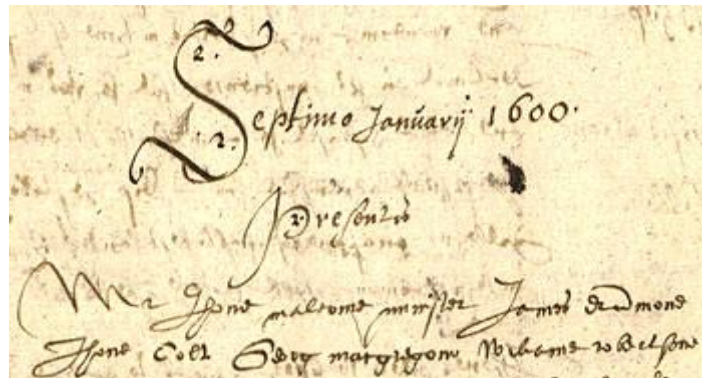 Septimo Januarij 1600.
Presentis
Mr Jhone malcome minister James drūmone
Jhone Colt Georg macgregour Williame robesone